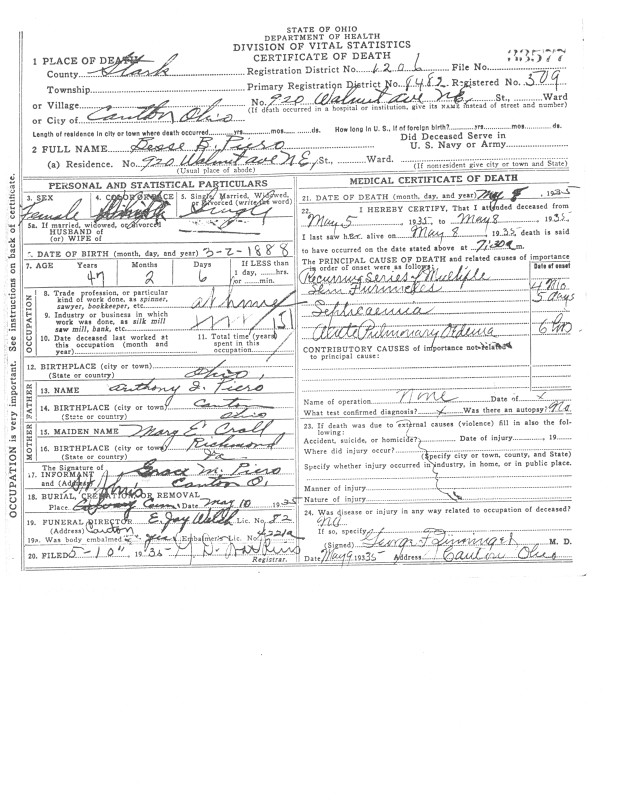 STATE OF OHIO
DEPARTMENT OF HEALTH
DIVISION OF VITAL STATISTICS
CERTIFICATE OF DEATH
33577
1 PLACE OF DEATH
County Stark Registration District No. 1206 File No.
Township Primary Registration District No. 8482 Registered No. 509
or Village No. 920 Walnut Ave N.E. St., Ward
(If death occurred in a hospital or institution, give its NAME instead of street and number)
or City of Canton Ohio
Length of residence in city or town where death occurred yrs. mos. ds. How long in U. S., if of foreign birth? yrs. mos. ds.
Did Deceased Serve in
2 FULL NAME B. Piero U. S. Navy or Army
(a) Residence. No. 920 Walnut Ave N.E. St., Ward.
(Usual place of abode) (If nonresident give city or town and State)
PERSONAL AND STATISTICAL PARTICULARS
3. SEX 4. COLOR OR RACE 5. Single, Married, Widowed, or Divorced (write the word)
Female Single
5a. If married, widowed, or divorced
HUSBAND of
(or) WIFE of
DATE OF BIRTH (month, day, and year) 3-2-1888
7. AGE Years Months Days If LESS than
1 day, hrs.
47 2 6 or min.
OCCUPATION
8. Trade, profession, or particular
kind of work done, as spinner, at home
sawyer, bookkeeper, etc.
9. Industry or business in
which work was done, as silk mill
saw mill, bank, etc.
10. Date deceased last worked at
this occupation (month and
year)
11. Total time (years)
spent in this
occupation
12. BIRTHPLACE (city or town)
(State or country) Ohio
FATHER
13. NAME Anthony J. Piero
14. BIRTHPLACE (city or town) Canton
(State or country) Ohio
MOTHER
15. MAIDEN NAME Mary E. Croll
16. BIRTHPLACE (city or town) Richmond
(State or country) Pa
The Signature of
17. INFORMANT Grace M. Piero
and (Address) Canton O.
18. BURIAL, CREMATION, OR REMOVAL
Place Calvary Cem Date May 10 1935
19. FUNERAL DIRECTOR E. Jay Welsh Lic. No. 82
(Address) Canton
19a. Was body embalmed yes Embalmer's Lic. No. 4221A
20. FILED 5-10, 1935
Registrar.
MEDICAL CERTIFICATE OF DEATH
21. DATE OF DEATH (month, day, and year) May 8, 1935
22. I HEREBY CERTIFY, That I attended deceased from
May 5, 1935, to May 8, 1935
I last saw her alive on May 8, 1935 death is said
to have occurred on the date stated above at 7:30 a m.
The PRINCIPAL CAUSE OF DEATH and related causes of importance
in order of onset were as follows: Date of onset
Recurring Series of Multiple
Skin Furuncles 4 Mo
Septicaemia 5 Days
Acute Pulmonary Oedema 6 hrs
CONTRIBUTORY CAUSES of importance not related
to principal cause:
Name of operation None Date of x
What test confirmed diagnosis? x Was there an autopsy? No
23. If death was due to external causes (violence) fill in also the fol-
lowing:
Accident, suicide, or homicide? Date of injury, 19
Where did injury occur?
(Specify city or town, county, and State)
Specify whether injury occurred in industry, in home, or in public place.
Manner of injury
Nature of injury
24. Was disease or injury in any way related to occupation of deceased?
No
If so, specify
(Signed) George F. M. D.
Date May 9 1935 Address Canton Ohio
OCCUPATION is very important. See instructions on back of certificate.